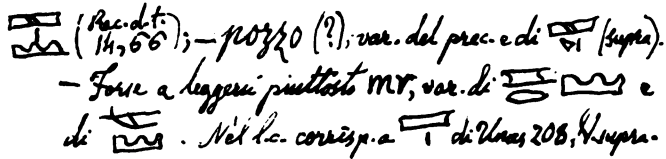 (Rec. d. t. 14, 66); — pozzo (?); var. del prec. e di (supra).
— Forse a leggersi piuttosto mr, var. di e
di . Nel l. c. corrisp. a di Unas 208, V. supra.